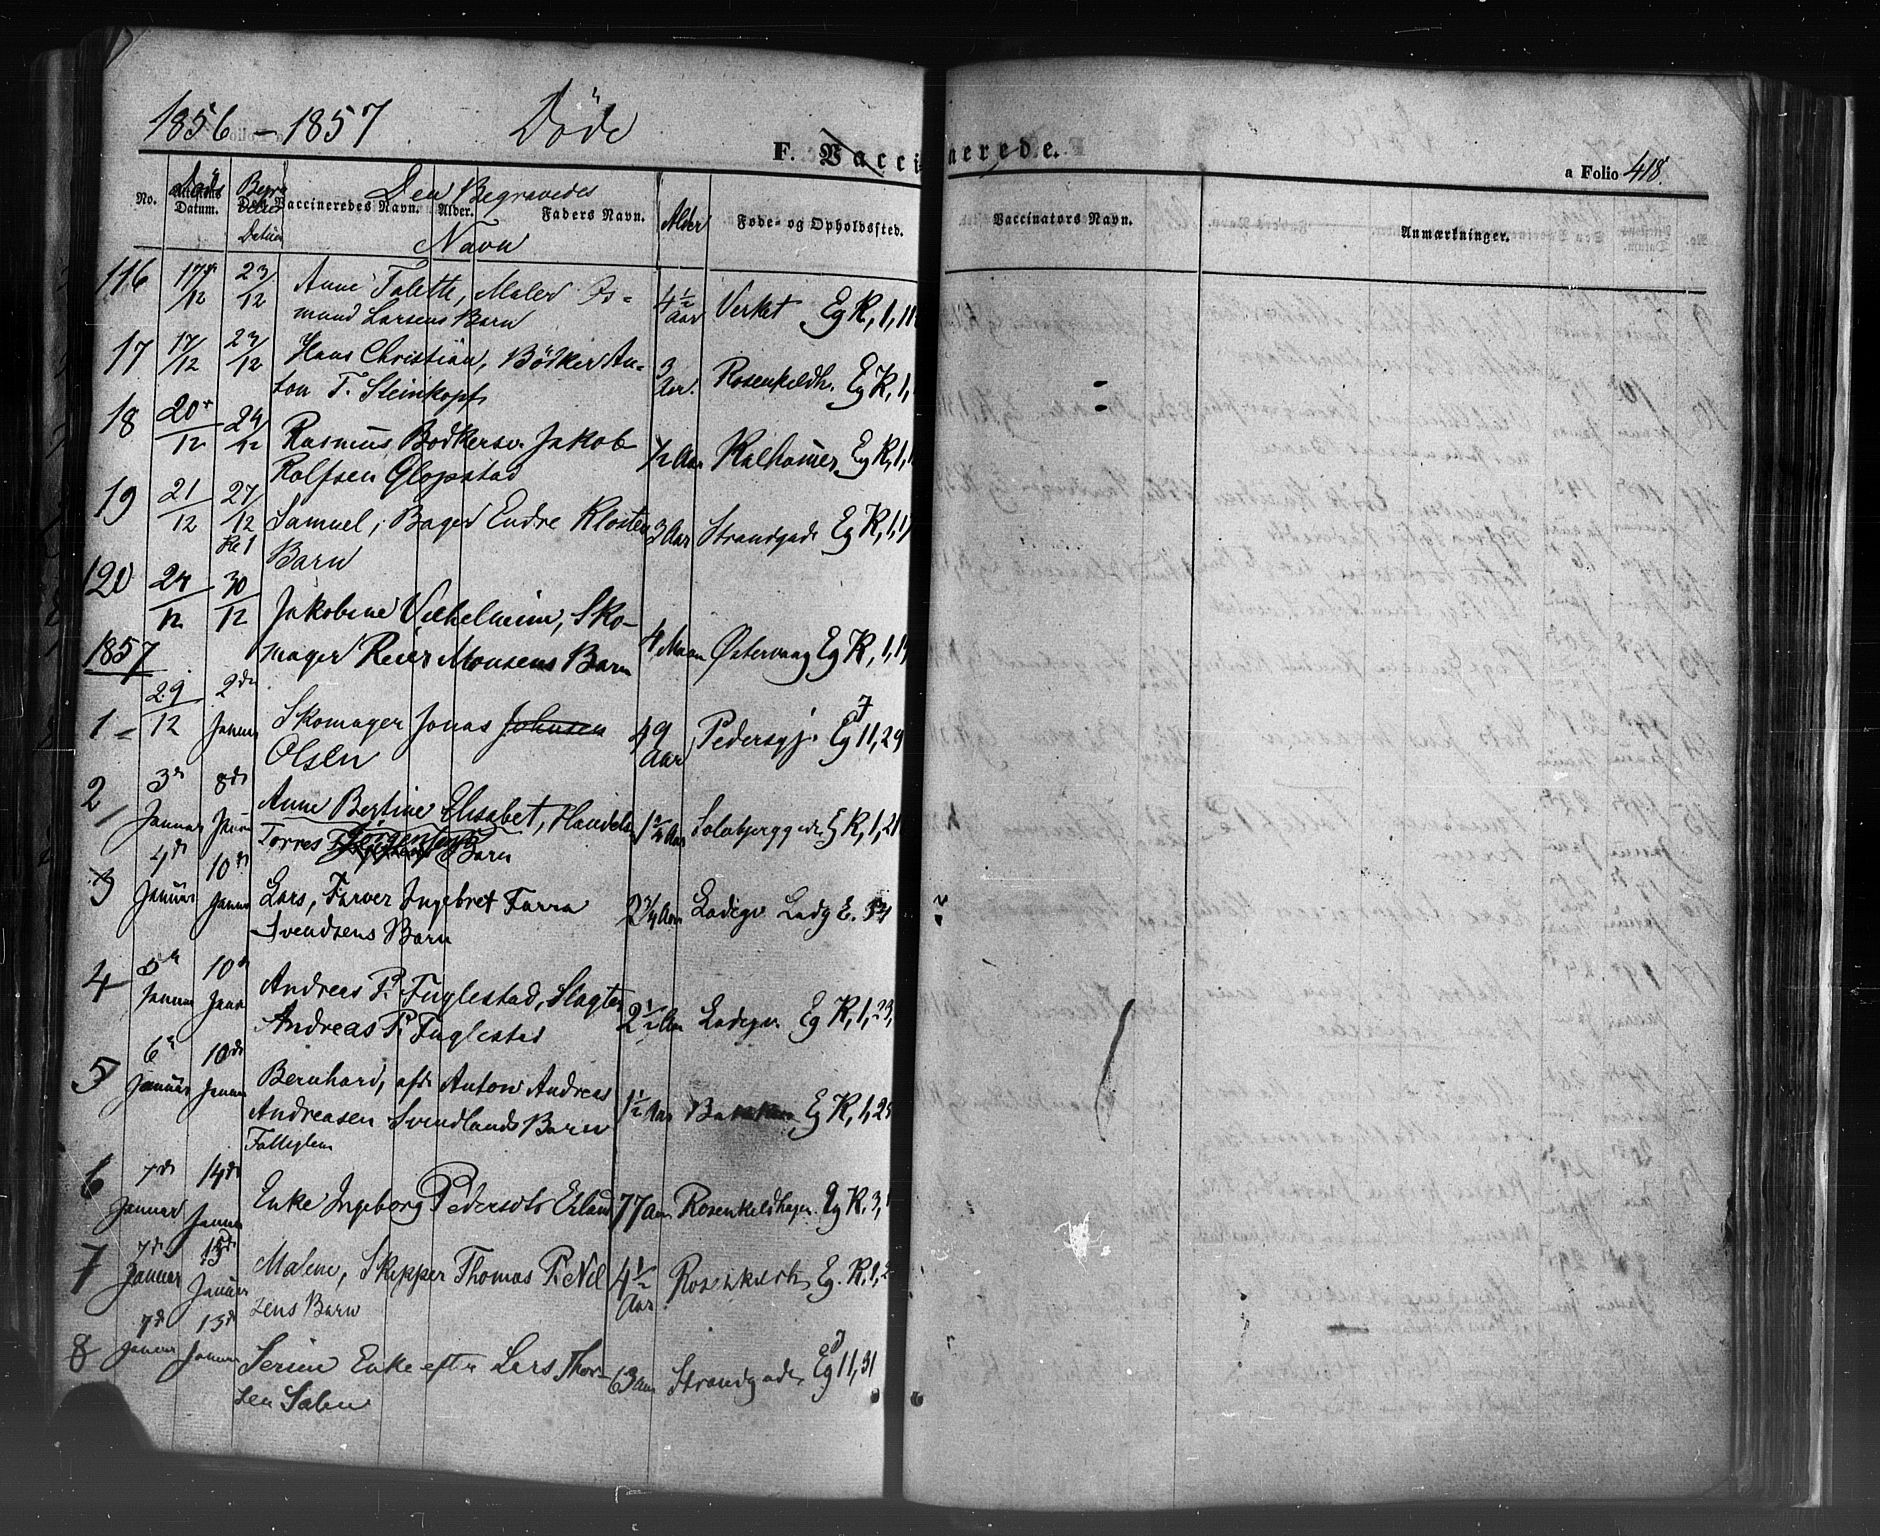 1856 - 1857 Döde
F. Vaccinerede.
a Folio 418.
No. Döds Datum. Begra Datum Den Vaccineredes Navn. Alder. Faders Navn. Alder Føde- og Opholdssted. Vaccinators Navn. Anmærkninger.
Den Begravedes
Navn
116 17/12 23/12 Anne Talette, Maler Os-
mund Larsens Barn 4½ Aar Verket Eg K, 1, 
17 17/12 23/12 Hans Christian, Bödker An-
ton T. Steinkopf 3 Aar. Rosenkildh. Eg K, 1,
18 20/12 24/12 Rasmus Bödkersv. Jakob
Rolfsen Glopstad ½ Aar Kalhamer Eg K, 1,
19 21/12 27/12 Samuel, Bager Endre Kloster
Barn 3 Aar Strandgade Eg K, 1, 
120 24/12 30/12 Jakobine Vilhelmine, Sko-
mager Reier Monsens Barn 4 Maan Østervaag Eg K, 1,
1857
1 29/12 2den Januar Skomager Jonas Johnsen
Olsen 49 Aar Pedersgj. Eg J 11, 29
2 3d Januar 8de Januar Anne Bertine Elisabet, Handels
Torres Barn 1¼ Aar Solabjerggade E K, 1, 21
3 4d Januar 10d Januar Lars, Farver Ingebret Tarra
Svendsens Barn 2¼ Aar Ladegr Ladg E.
4 5d Januar 10d Januar Andreas P. Fuglestad, Slagter
Andreas P. Fuglestad 2½ Aar Ladegr. Eg K, 1, 23,
5 6d Januar 10de Januar Bernhard, afd. Anton Andreas
Andreasen Svendlands Barn 1½ Aar Eg K, 1, 25
6 7d Januar 14d Januar Enke Ingeborg Pedersdtr Eiland 77 Aar Rosenkildhagen. Eg K, 3,
7 7d Januar 15d Januar Malene, Skipper Thomas P. Nil
sens Barn 4½ Aar Rosenkildh Eg. K, 1, 2
8 7d Januar 13d Januar Serine Enke efter Lars Thor-
sen Salen 63 Aar Strandgade Eg J 11, 31